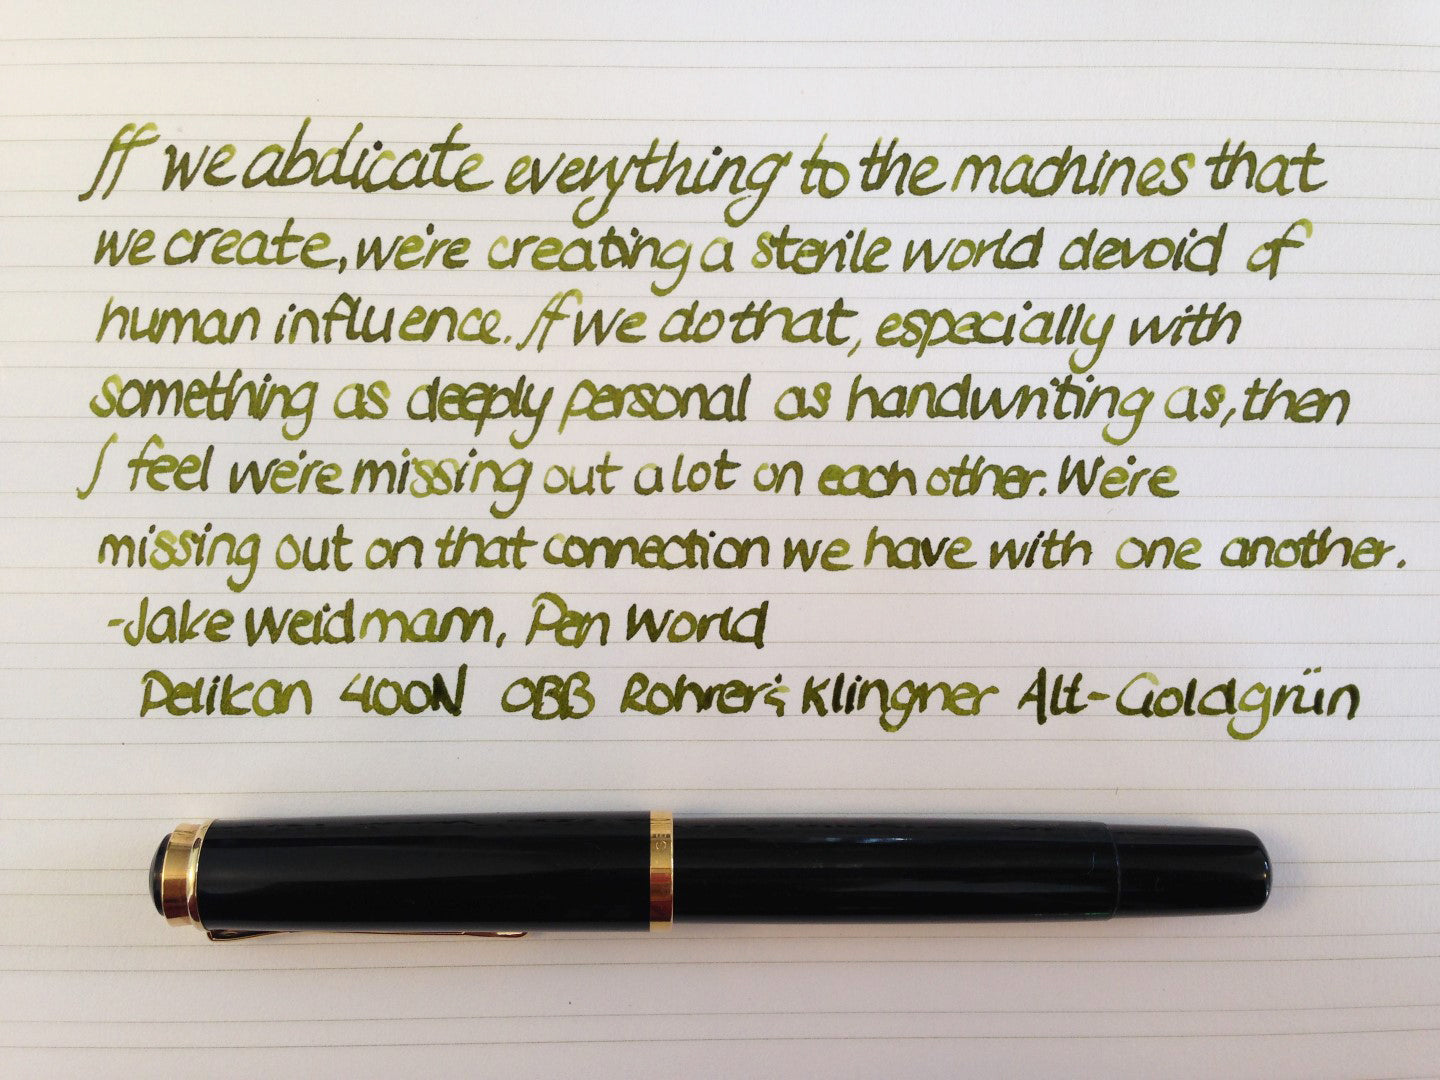 If we abdicate everything to the machines that
we create, we're creating a sterile world devoid of
human influence. If we do that, especially with
something as deeply personal as handwriting as, then
I feel we're missing out a lot on each other. We're
missing out on that connection we have with one another.
-Jake Weidmann, Pen World
Pelikan 400N OBB Rohrer & Klingner Alt-Goldgrün